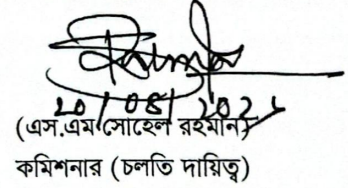 20/08/202
(এস.এম সোহেল রহমান)
কমিশনার (চলতি দায়িত্ব)